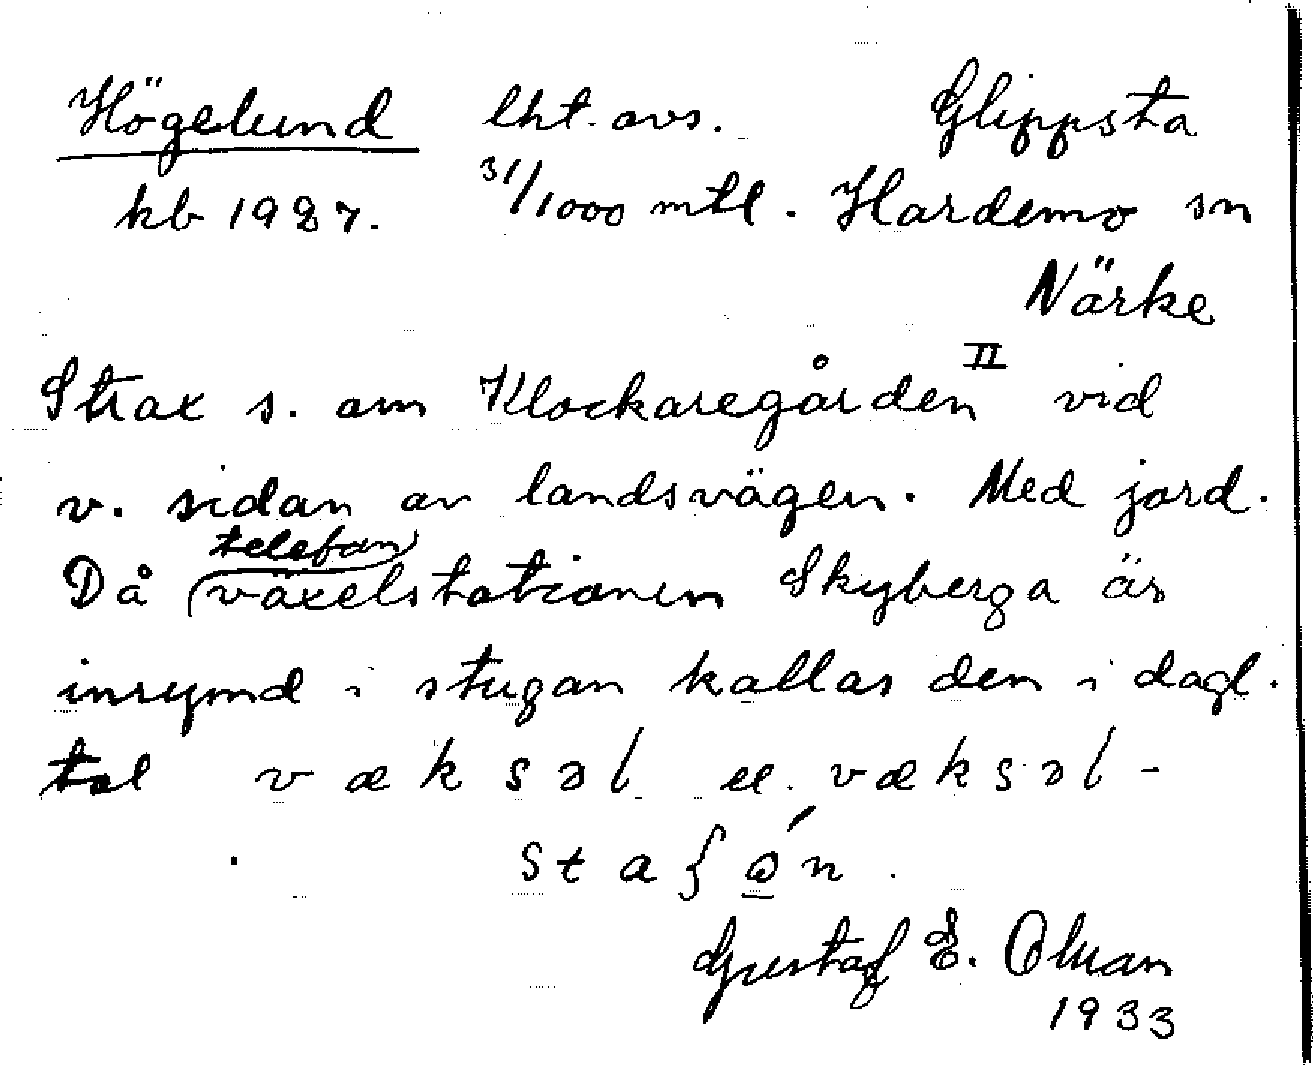 Högelund lht. avs. Glippsta
kb 1927. 31/1000 mtl. Hardemo sn
Närke
Strax s. om Klockaregården II vid
v. sidan av landsvägen. Med jord.
telefon
Då växelstationen Skyberga är
inrymd i stugan kallas den i dagl.
tal væksəl el. væksəl-
staʃǿn.
Gustaf E. Ohlson
1933